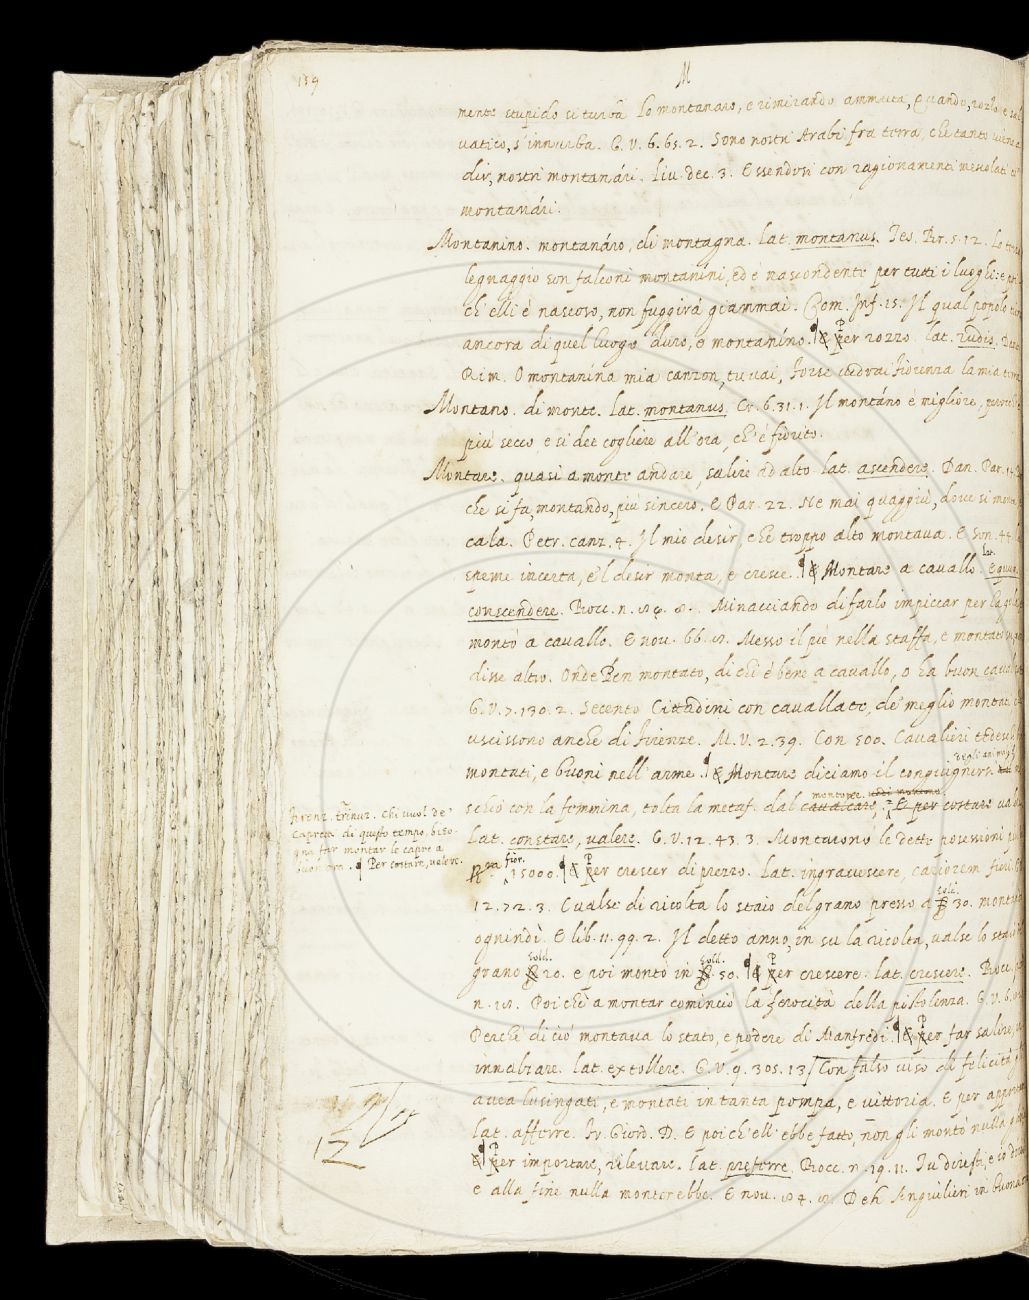 159
M
mente stupido si turba lo montanaro, e rimirando ammuta, Quando, rozzo e sal
vatico, s'innurba. G. V. 6. 65. 2. Sono nostri Arabi fra terra che tanto viene a
dir, nostri montanári. Liv. dec. 3. Essendosi con ragionamenti mescolati
montanári.
Montanino. montanáro, di montagna. lat. montanus. Tes. Br. 5. 12. Lo
legnaggio son falconi montaníni, ed é nascondente per tutti i luoghi: e poi
ch'elli é nascoso, non fuggirá giammai. Com. Inf. 15. Il qual popolo tiene
ancora di quel luogo duro, e montaníno. ¶ & Per rozzo. lat. rudis.
Rim. O montanína mia canzon, tu vai, Forse vedrai Fiorenza la mia terra
Montano. di monte. lat. montanus. Cr. 6. 31. 1. Il montáno é migliore,
piú secco e si dee cogliere all'ora, ch'é fiorito.
Montare. quasi a monte andare, salire ad alto lat. ascendere. Dan. Par. 14.
che si fa, montando, piú sincero. E Par. 22. Ne mai quaggiú, dove si monta,
cala. Petr. canz. 4. Il mio desir, che troppo alto montava. E Son. 44.
speme incerta, e'l desir monta, e cresce. ¶ & Montare a cavallo. lat. Equum
conscendere. Bocc. n. Minacciando di farlo impiccar per la gola
montó a cavallo. E nov. 66. Messo il pié nella staffa, e montato
disse altro. Onde Ben montato, di chi é bene a cavallo, o ha buon cavallo
G. V. 7. 130. 2. Secento Cittadini con cavallate, de' meglio montati
uscissono anche di Firenze. M. V. 2. 39. Con 500. Cavalieri tedeschi
montati, e buoni nell'arme. ¶ & Montare diciamo il congiugnersi degli animali
schio con la femmina, tolta la metaf. dal cavalcare, montone. E per costare vale
Lat. constare, valere. G. V. 12. 43. 3. Montarono le dette possessioni
fior. 15000. ¶ & Per crescer di prezzo. Lat. ingravescere, cariorem fieri.
12. 72. 3. E valse di ricolta lo staio del grano presso a soldi 30. montando
ognindí. E lib. 11. 99. 2. Il detto anno, in su la ricolta, valse lo staio
grano sold. 20. e poi montó in sold. 50. ¶ & Per crescere. lat. crescere. Bocc.
n. Poiché a montar cominció la ferocitá della pistolenza. G. V. 6.
Perché di ció montava lo stato, e podere di Manfredi. ¶ & Per far salire,
innalzare. lat. extollere. G. V. 9. 305. 13. Con falso viso di felicitá gli
avea lusingati, e montati in tanta pompa, e vittoria. E per
lat. afferre. Fr. Giord. D. E poi ch'ell'ebbe fatto, non gli montó nulla
& ¶ Per importare, rilevare. lat. preferre. Bocc. n. 19. 11. Tu diresti, e io direi
e alla fine nulla monterebbe. E nov. Deh Anguilieri in buona
Capretta di questo tempo, biso-
gna far montar le capre a
¶ Per costare, valere.
12